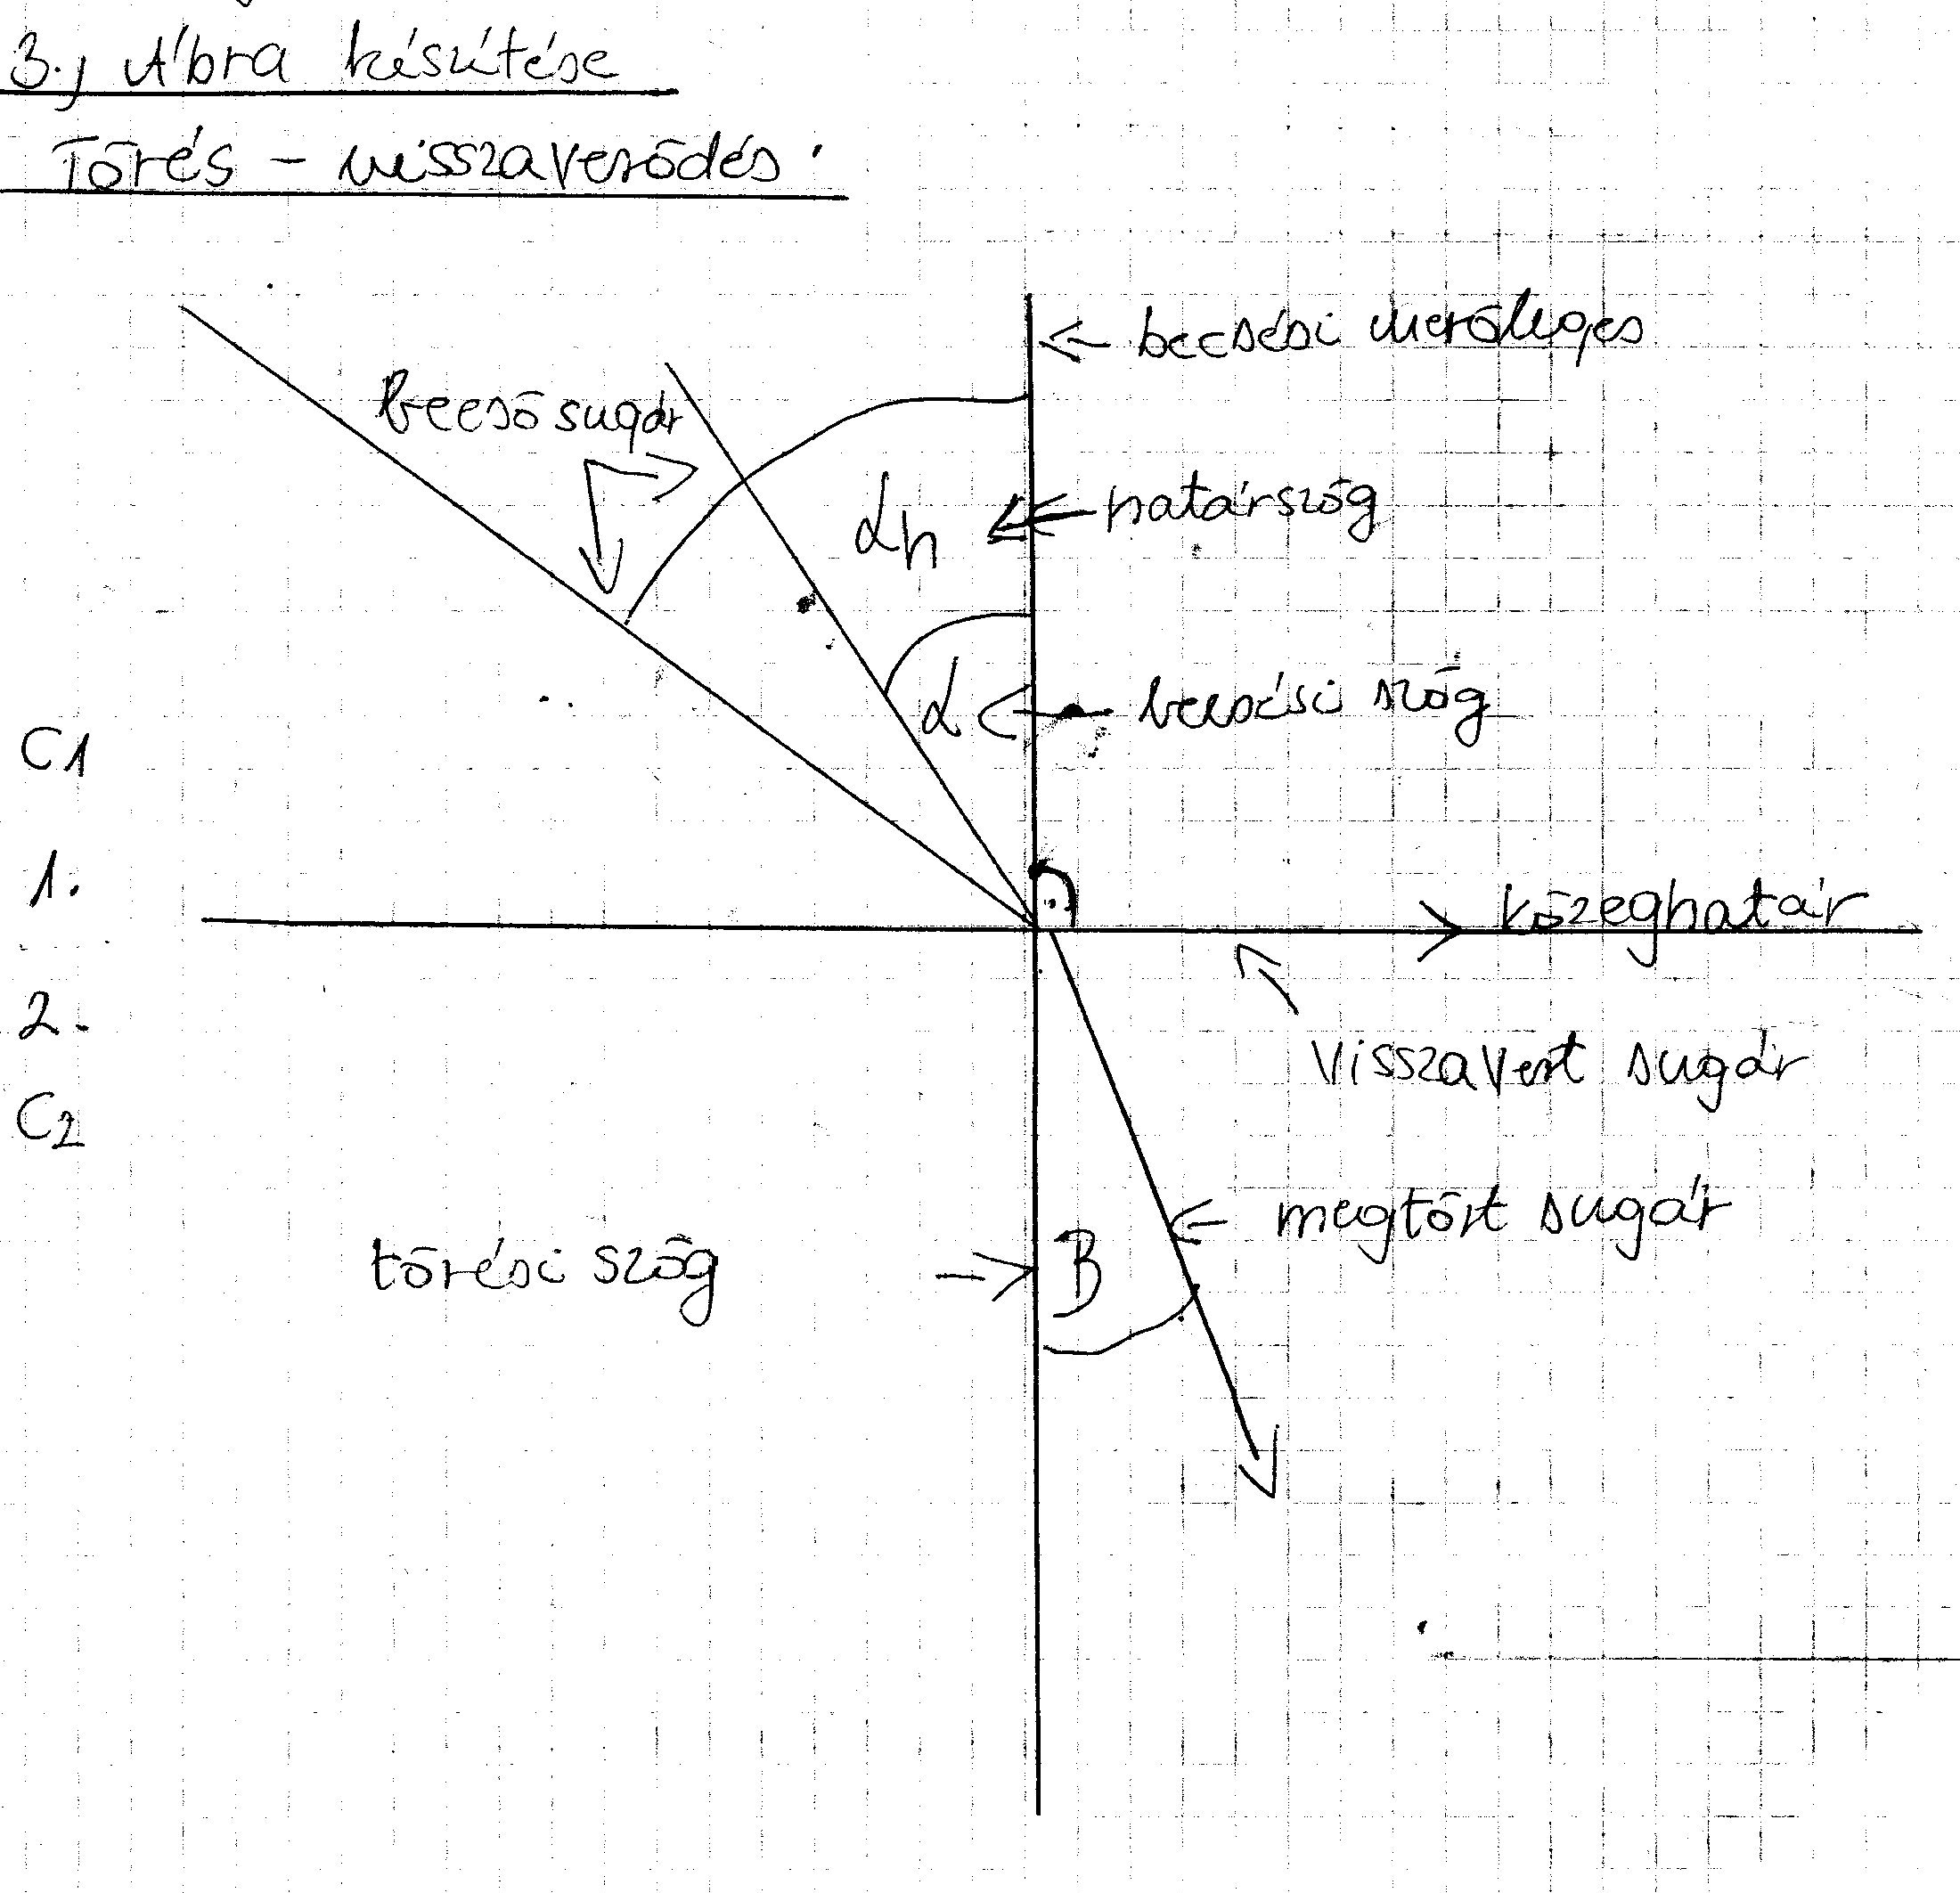 3., Ábra készítése
Törés - visszaverődés:
← beesési merőleges
beeső sugár
αh ← határszög
α ← beesési szög
C1
1.
közeghatár
2.
visszavert sugár
C2
← megtört sugár
törési szög → B